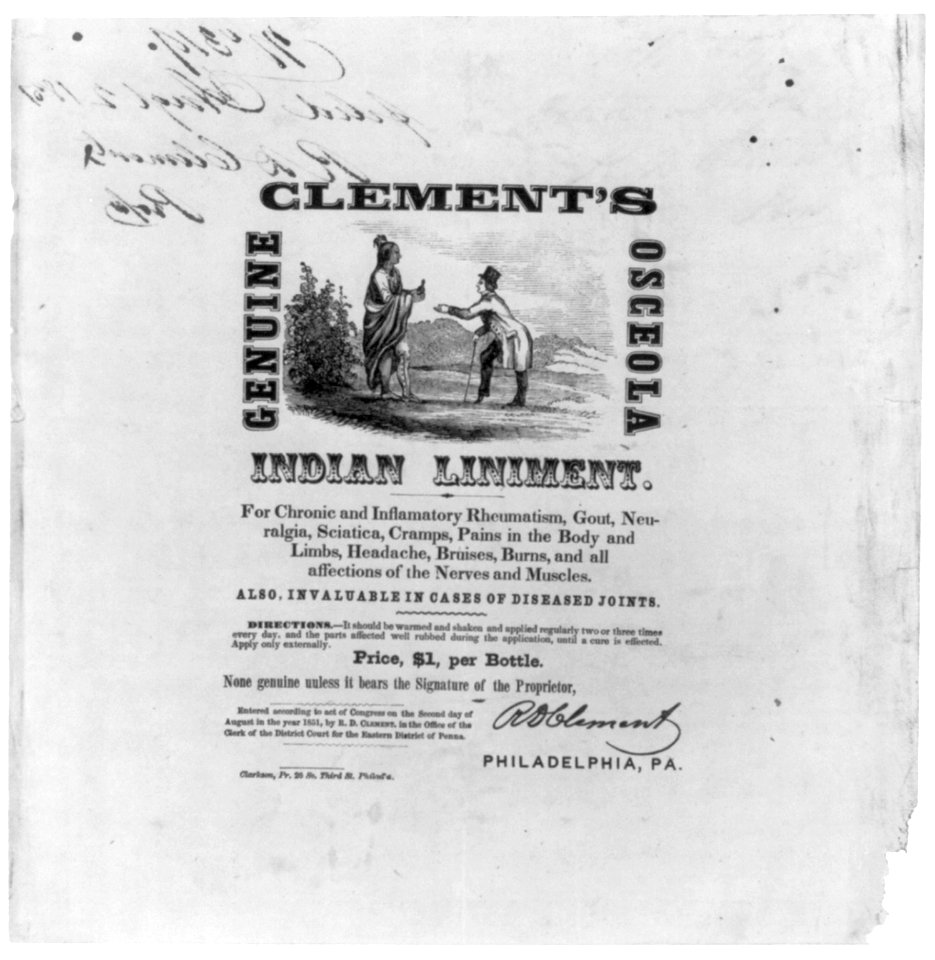 CLEMENT'S
GENUINE
OSCEOLA
INDIAN LINIMENT.
For Chronic and Inflamatory Rheumatism, Gout, Neu-
ralgia, Sciatica, Cramps, Pains in the Body and
Limbs, Headache, Bruises, Burns, and all
affections of the Nerves and Muscles.
ALSO, INVALUABLE IN CASES OF DISEASED JOINTS.
DIRECTIONS.—It should be warmed and shaken and applied regularly two or three times
every day, and the parts affected well rubbed during the application, until a cure is effected.
Apply only externally.
Price, $1, per Bottle.
None genuine unless it bears the Signature of the Proprietor,
Entered according to act of Congress on the Second day of
August in the year 1851, by R. D. CLEMENT, in the Office of the
Clerk of the District Court for the Eastern District of Penna.
R D Clement
PHILADELPHIA, PA.
Clarkson, Pr. 26 So. Third St. Philad'a.